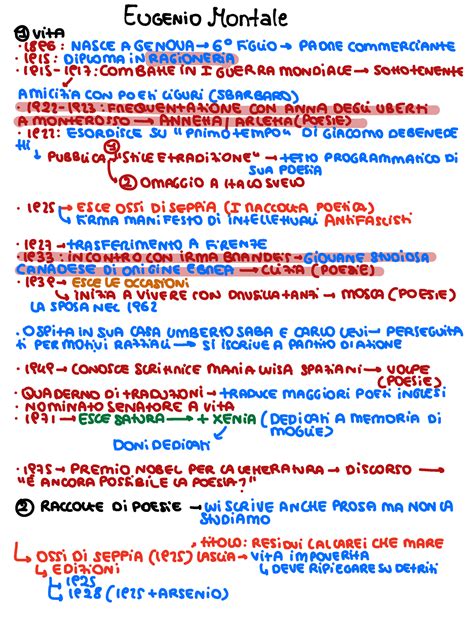 EUGENIO MONTALE
① VITA
• 1896: NASCE A GENOVA → 6° FIGLIO → PADRE COMMERCIANTE
• 1915: DIPLOMA IN RAGIONERIA
• 1915-1917: COMBATTE IN I GUERRA MONDIALE → SOTTOTENENTE
AMICIZIA CON POETI LIGURI (SBARBARO)
• 1922-1923: FREQUENTAZIONE CON ANNA DEGLI UBERTI
A MONTEROSSO → ANNETTA/ARLETTA (POESIE)
• 1922: ESORDISCE SU "PRIMO TEMPO" DI GIACOMO DEBENEDE
TTI
↳ PUBBLICA "STILE E TRADIZIONE" → TESTO PROGRAMMATICO DI
SUA POESIA
② OMAGGIO A ITALO SVEVO
• 1925 → ESCE OSSI DI SEPPIA (I RACCOLTA POETICA)
↳ FIRMA MANIFESTO DI INTELLETTUALI ANTIFASCISTI
• 1927 → TRASFERIMENTO A FIRENZE
• 1933: INCONTRO CON IRMA BRANDEIS → GIOVANE STUDIOSA
CANADESE DI ORIGINE EBREA → CLIZIA (POESIE)
• 1939 → ESCE LE OCCASIONI
↳ INIZIA A VIVERE CON DRUSILLA TANZI → MOSCA (POESIE)
LA SPOSA NEL 1962
• OSPITA IN SUA CASA UMBERTO SABA E CARLO LEVI → PERSEGUITA
TI PER MOTIVI RAZZIALI → SI ISCRIVE A PARTITO D'AZIONE
• 1949 → CONOSCE SCRITTRICE MARIA LUISA SPAZIANI → VOLPE
(POESIE)
• QUADERNO DI TRADUZIONI → TRADUCE MAGGIORI POETI INGLESI
• NOMINATO SENATORE A VITA
• 1971 → ESCE SATURA → + XENIA (DEDICATI A MEMORIA DI
MOGLIE)
DONI DEDICATI
• 1975 → PREMIO NOBEL PER LA LETTERATURA → DISCORSO →
"È ANCORA POSSIBILE LA POESIA?"
② RACCOLTE DI POESIE → LUI SCRIVE ANCHE PROSA MA NON LA
STUDIAMO
• TITOLO: RESIDUI CALCAREI CHE MARE
↳ OSSI DI SEPPIA (1925) LASCIA → VITA IMPOVERITA
↳ EDIZIONI ↳ DEVE RIPIEGARE SU DETRITI
↳ 1925
↳ 1928 (1925 + ARSENIO)